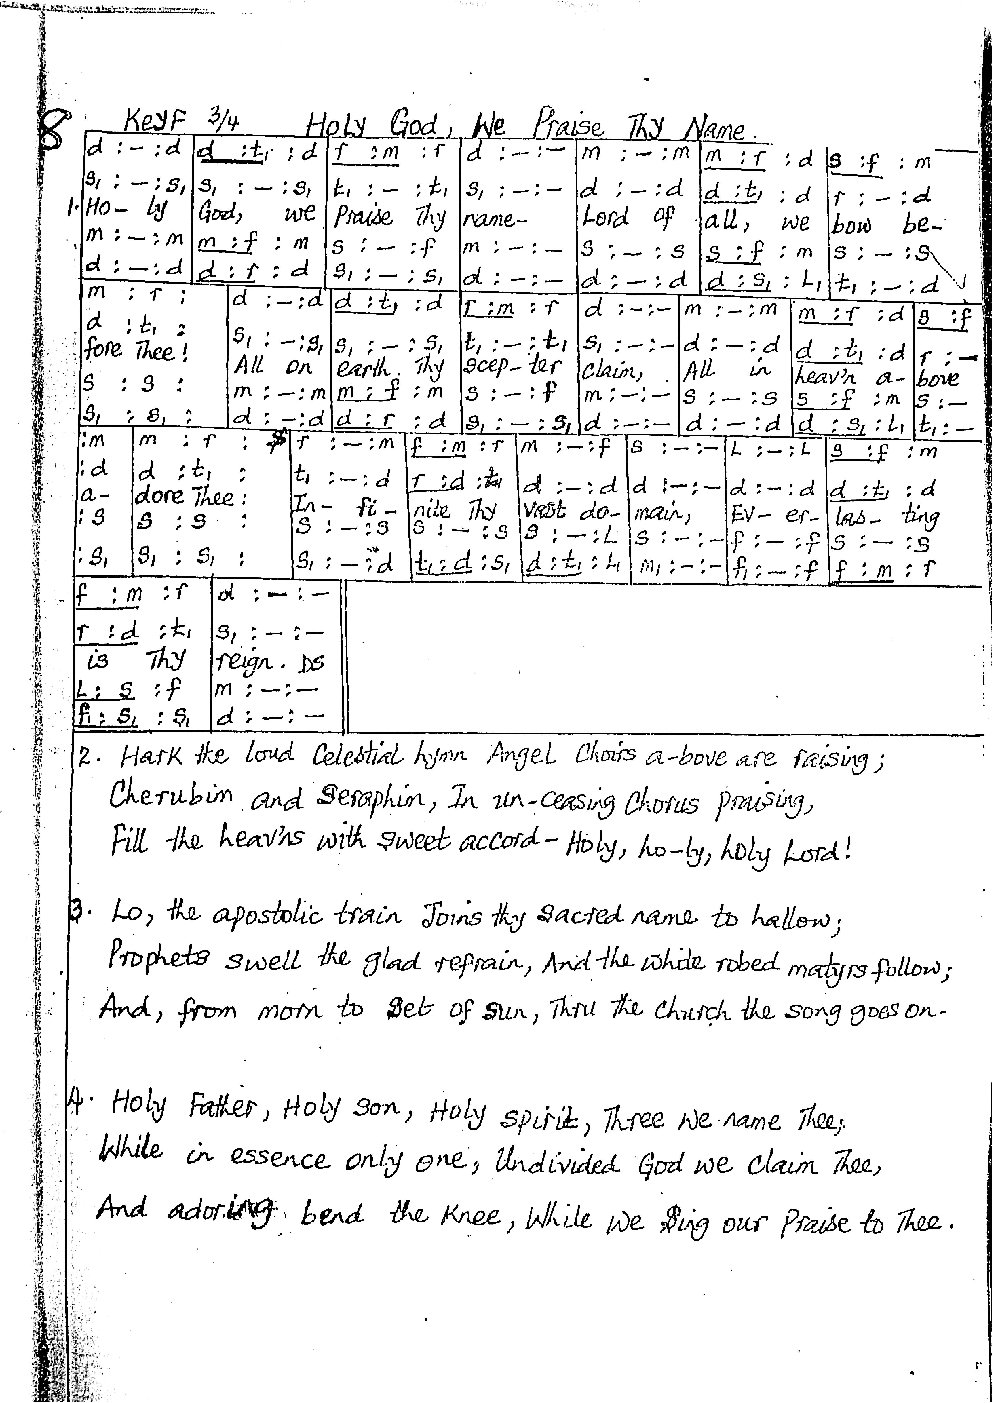 8 Key F 3/4 Holy God, We Praise Thy Name.
d : – : d | d : t₁ : d | r : m : r | d : – : – | m : – : m | m : r : d | s : f : m
s₁ : – : s₁ | s₁ : – : s₁ | t₁ : – : t₁ | s₁ : – : – | d : – : d | d : t₁ : d | r : – : d
1. Ho- ly | God, we | Praise Thy | name- | Lord of | all, we | bow be-
m : – : m | m : f : m | s : – : f | m : – : – | s : – : s | s : f : m | s : – : s
d : – : d | d : r : d | s₁ : – : s₁ | d : – : – | d : – : d | d : s₁ : L₁ | t₁ : – : d
m : r : | d : – : d | d : t₁ : d | r : m : r | d : – : – | m : – : m | m : r : d | s : f
d : t₁ : | s₁ : – : s₁ | s₁ : – : s₁ | t₁ : – : t₁ | s₁ : – : – | d : – : d | d : t₁ : d | r : –
fore Thee! | All on | earth Thy | scep-ter | claim, | All in | heav'n a- | bove
s : s : | m : – : m | m : f : m | s : – : f | m : – : – | s : – : s | s : f : m | s : –
s₁ : s₁ : | d : – : d | d : r : d | s₁ : – : s₁ | d : – : – | d : – : d | d : s₁ : L₁ | t₁ : –
: m | m : r : | r : – : m | f : m : r | m : – : f | s : – : – | L : – : L | s : f : m
: d | d : t₁ : | t₁ : – : d | r : d : t₁ | d : – : d | d : – : – | d : – : d | d : t₁ : d
a- | dore Thee : | In- fi- | nite Thy | vast do- | main, | Ev- er- | las- ting
: s | s : s : | s : – : s | s : – : s | s : – : L | s : – : – | f : – : f | s : – : s
: s₁ | s₁ : s₁ : | s₁ : – : d | t₁ : d : s₁ | d : t₁ : L₁ | m₁ : – : – | f₁ : – : f | f : m : r
f : m : r | d : – : –
r : d : t₁ | s₁ : – : –
is Thy | reign. DS
L : s : f | m : – : –
f₁ : s₁ : s₁ | d : – : –
2. Hark the loud Celestial hymn Angel Choirs a-bove are raising;
Cherubim and Seraphin, In un-ceasing Chorus praising,
Fill the heav'ns with sweet accord – Holy, ho-ly, holy Lord!
3. Lo, the apostolic train Joins thy sacred name to hallow;
Prophets swell the glad refrain, And the white robed matyrs follow;
And, from morn to set of sun, Thru the Church the song goes on-
4. Holy Father, Holy Son, Holy spirit, Three we name Thee;
While in essence only one, Undivided God we claim Thee,
And adoring bend the Knee, While we Sing our Praise to Thee.